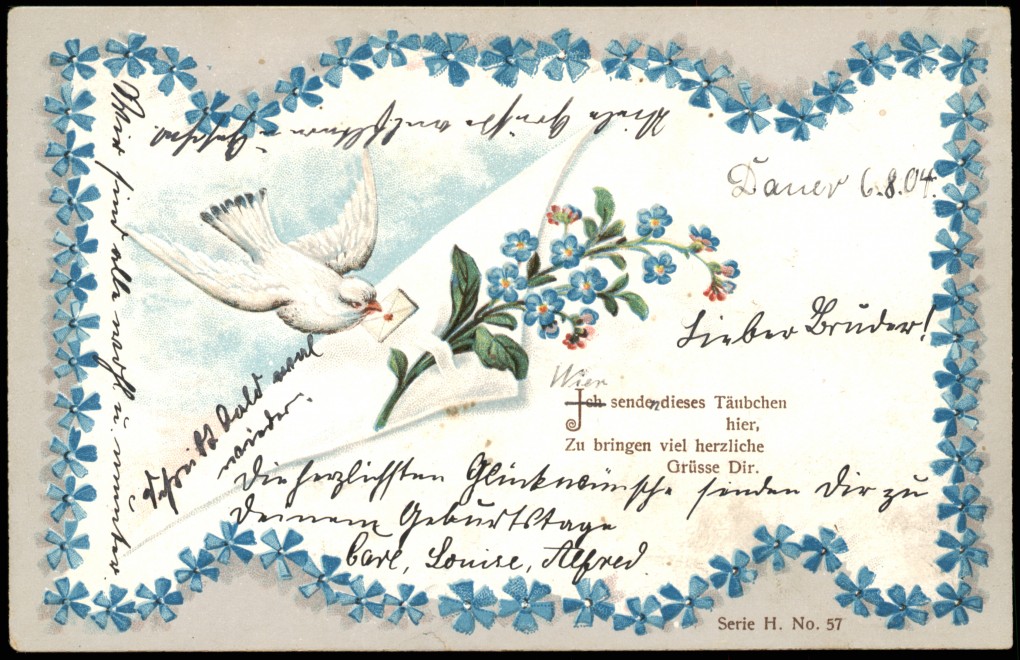 Dauer 6.8.04.
Lieber Bruder!
Wier
Ich senden dieses Täubchen
hier,
Zu bringen viel herzliche
Grüsse Dir.
Die herzlichsten Glückwünsche senden Dir zu
Deinem Geburtstage
Carl, Louise, Alfred.
Schreibt bald mal
wieder.
Wir sind alle wohl u. munter
Viele Grüße an
Serie H. No. 57